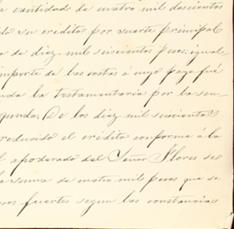 cantidad de cuatro mil doscientos
su crédito por cuarto principal
de diez mil seiscientos pesos, igual
importe de las costas a cuyo pago fué
la testamentaria por la sen
De los diez mil seiscientos
reducido el crédito conforme á la
apoderado del Señor Flores se
suma de cuatro mil pesos que se
fuertes segun las constancias